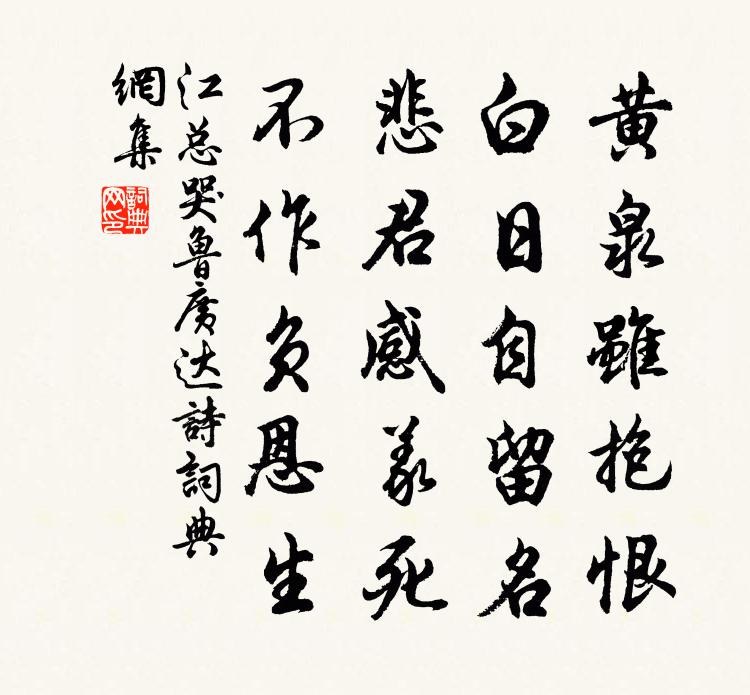 黄泉雖抱恨
白日自留名
悲君感義死
不作負恩生
江总哭魯廣达詩詞典
網集
詞典網印